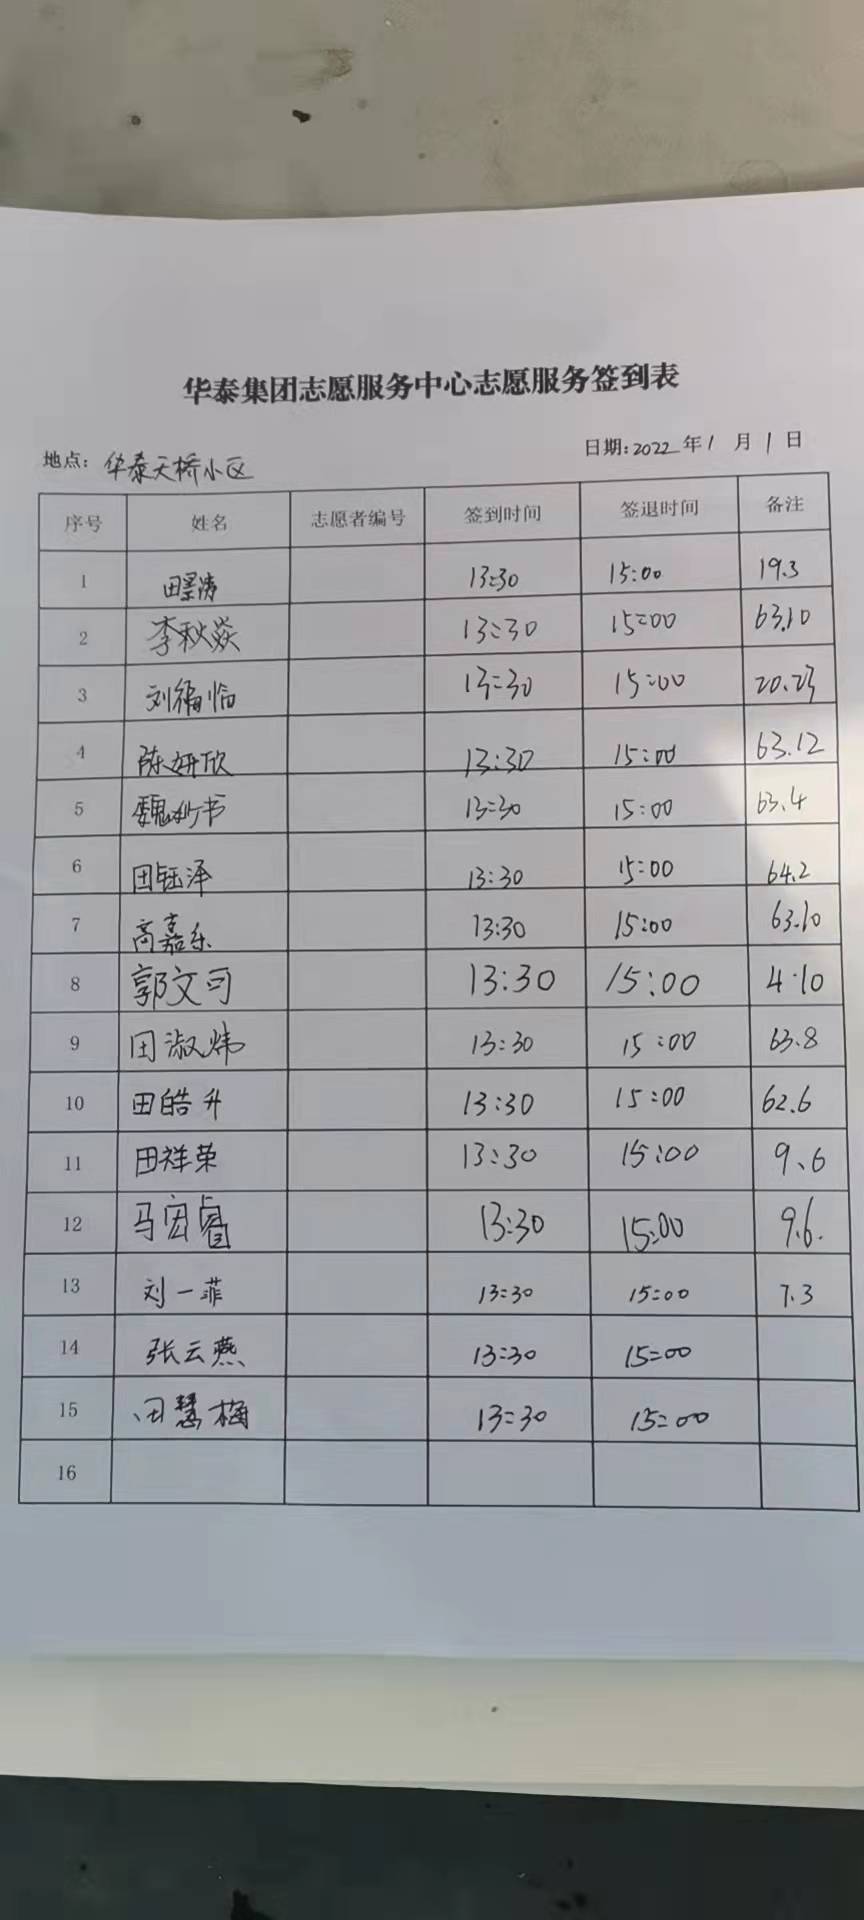 华泰集团志愿服务中心志愿服务签到表
地点：华泰天桥小区 日期：2022年1月1日
序号 姓名 志愿者编号 签到时间 签退时间 备注
1 13:30 15:00 19.3
2 李秋焱 13:30 15:00 63.10
3 刘福临 13:30 15:00 20.23
4 陈妍欣 13:30 15:00 63.12
5 13:30 15:00 63.4
6 田钰泽 13:30 15:00 64.2
7 高嘉乐 13:30 15:00 63.10
8 郭文可 13:30 15:00 4.10
9 田淑炜 13:30 15:00 63.8
10 田皓升 13:30 15:00 62.6
11 田祥荣 13:30 15:00 9.6
12 马宏睿 13:30 15:00 9.6.
13 刘一菲 13:30 15:00 7.3
14 张云燕 13:30 15:00
15 田慧梅 13:30 15:00
16